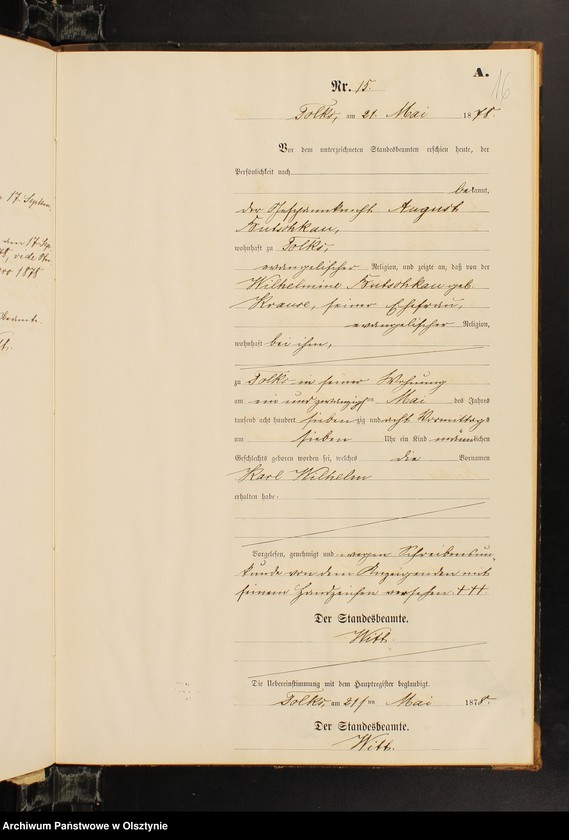 A.
16
Nr. 15.
Tolks, am 21. Mai 1878.
Vor dem unterzeichneten Standesbeamten erschien heute, der
Persönlichkeit nach
bekannt,
der August
Kutschkau,
wohnhaft zu Tolks,
evangelischer Religion, und zeigte an, daß von der
Wilhelmine Kutschkau geb.
Krause, seiner Ehefrau,
evangelischer Religion,
wohnhaft bei ihm,
zu Tolks in seiner Wohnung
am ein und zwanzigsten Mai des Jahres
tausend acht hundert siebenzig und acht Vormittags
um sieben Uhr ein Kind männlichen
Geschlechts geboren worden sei, welches die Vornamen
Karl Wilhelm
erhalten habe.
Vorgelesen, genehmigt und wegen Schreibensun
kunde von dem Anzeigenden mit
seinem Handzeichen versehen. +++
Der Standesbeamte.
Witt.
Die Uebereinstimmung mit dem Hauptregister beglaubigt.
Tolks, am 21ten Mai 1878.
Der Standesbeamte.
Witt.
17. Septem.
1878
Archiwum Państwowe w Olsztynie